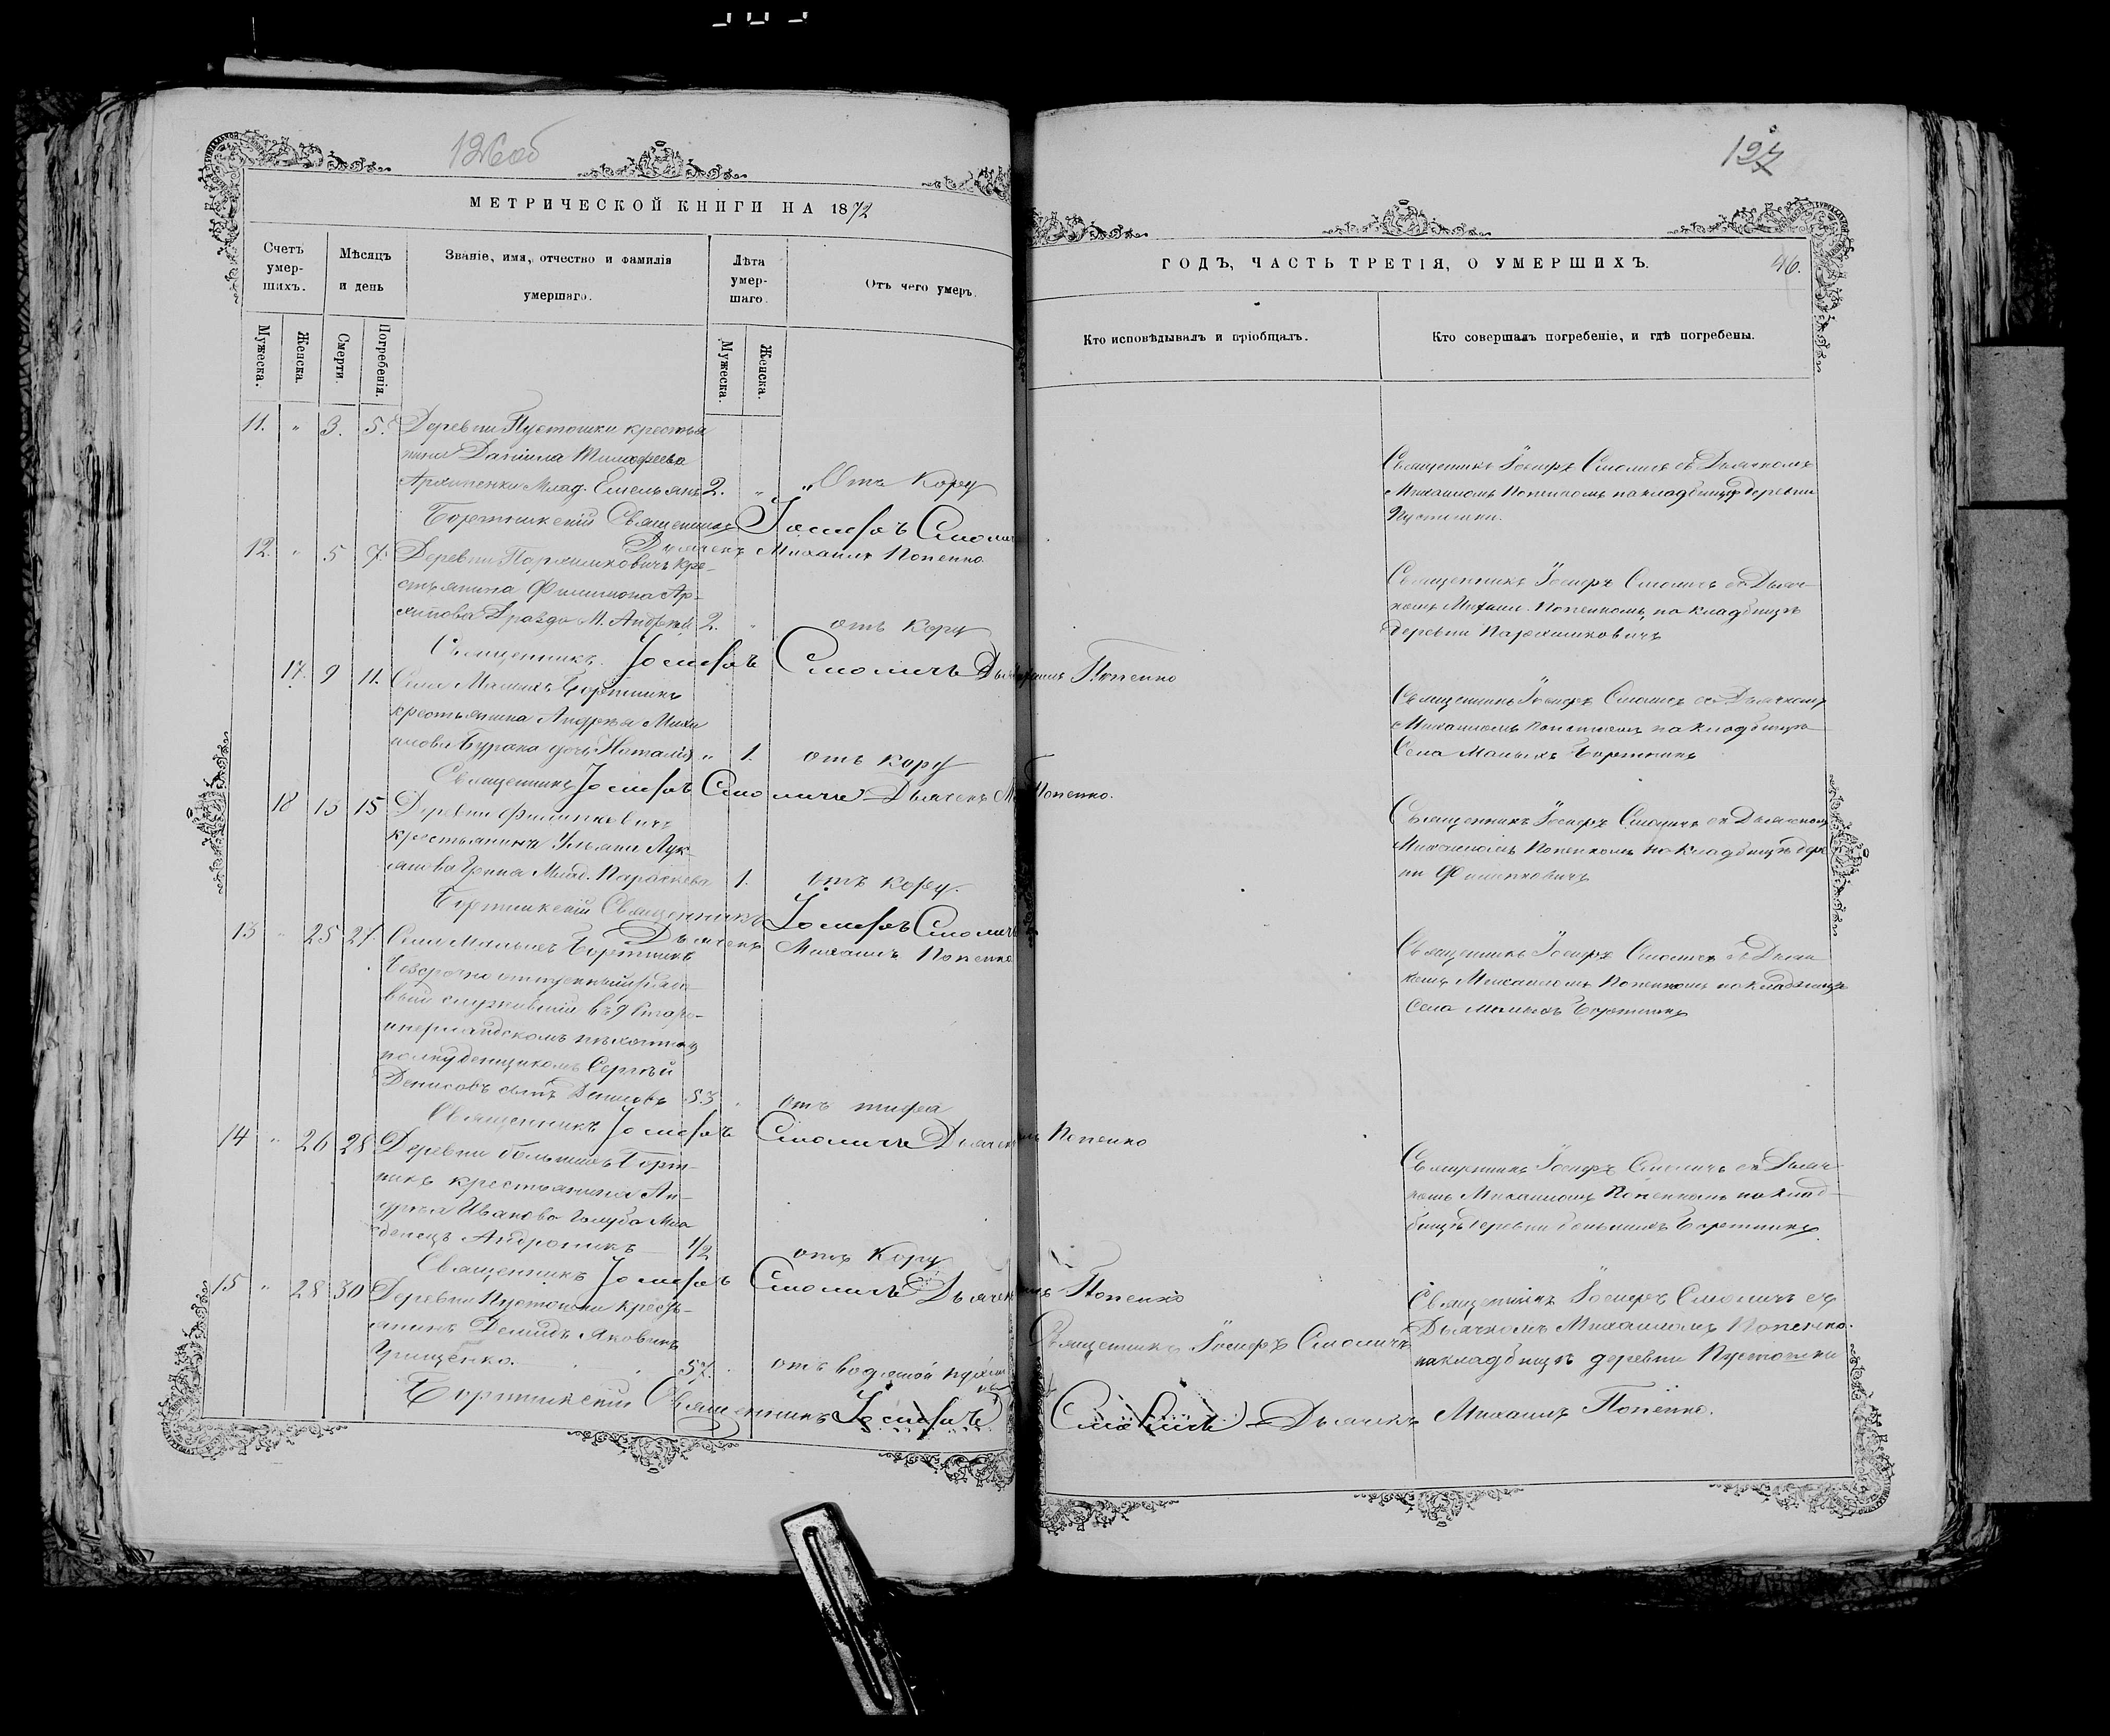 126об
МЕТРИЧЕСКОЙ КНИГИ НА 1872
Счетъ умер-шихъ.
Мѣсяцъ и день
Званіе, имя, отчество и фамилія умершаго.
Лѣта умер-шаго.
Отъ чего умеръ.
Мужеска.
Женска.
Смерти.
Погребенія.
Мужеска.
Женска.
11. " 3. 5. Деревни Пустошки крестья
нина Даніила Тимофеева
Архипенки Млад. Емельянъ 2. " Отъ Кору
Бортникскій Священникъ Іосифъ Смоличъ
Дьячекъ Михаилъ Попенко
12. " 5 7. Деревни Пархимковичъ кре-
стьянина Филимона Ар-
хипова Дразда М. Андрей 2. " отъ кору
Священникъ Іосифъ Смоличъ Дьячекъ Попенко
17. 9 11. Села Малыхъ Бортникъ
крестьянина Андрея Миха
илова Бурака дочь Наталія " 1. отъ кору
Священникъ Іосифъ Смоличъ Дьячекъ Попенко.
18 13 15 Деревни Филипковичъ
крестьянина Ульяна Лук-
янова Млад. Параскева 1. отъ кору.
Бортникскій Священникъ Іосифъ Смоличъ
Дьячекъ Михаилъ Попенко
13 " 25 27. Села Малыхъ Бортникъ
безсрочно отпускный рядо-
вый служившій въ 9
пѣхотномъ
полку денщикомъ Сергѣй
Денисовъ сынъ Денисовъ 53 " отъ тифа
Священникъ Іосифъ Смоличъ Дьячекъ Попенко
14 " 26 28 Деревни большихъ Борт-
никъ крестьянина Ан-
дрея Иванова Голуба Мла
денецъ Андроникъ 1/2 отъ Кору
Священникъ Іосифъ Смоличъ Дьячекъ Попенко
15 " 28 30 Деревни Пустошки кресть-
янинъ Демидъ Яковлевъ
Грищенко. 57. отъ водяной
Бортникскій Священникъ Іосифъ
127
ГОДЪ, ЧАСТЬ ТРЕТІЯ, О УМЕРШИХЪ.
46.
Кто исповѣдывалъ и пріобщалъ.
Кто совершалъ погребеніе, и гдѣ погребены.
Священникъ Іосифъ Смоличъ съ Дьячкомъ
Михаиломъ Попенкомъ на кладбищѣ деревни
Пустошки.
Священникъ Іосифъ Смоличъ съ Дьяч-
комъ Михаил. Попенкомъ, на кладбищѣ
деревни Пархимковичъ
Священникъ Іосифъ Смоличъ съ Дьячкомъ
Михаиломъ Попенкомъ на кладбищѣ
Села Малыхъ Бортникъ
Священникъ Іосифъ Смоличъ съ Дьячкомъ
Михаиломъ Попенкомъ на кладбищѣ дерев
ни Филипковичъ
Священникъ Іосифъ Смоличъ съ Дьяч
комъ Михаиломъ Попенкомъ на кладбищѣ
Села Малыхъ Бортникъ
Священникъ Іосифъ Смоличъ съ Дьяч
комъ Михаиломъ Попенкомъ на клад-
бищѣ деревни большихъ Бортникъ
Священникъ Іосифъ Смоличъ
Священникъ Іосифъ Смоличъ съ
Дьячкомъ Михаиломъ Попенко.
на кладбищѣ деревни Пустошки
Смоличъ Дьячекъ Михаилъ Попенко.